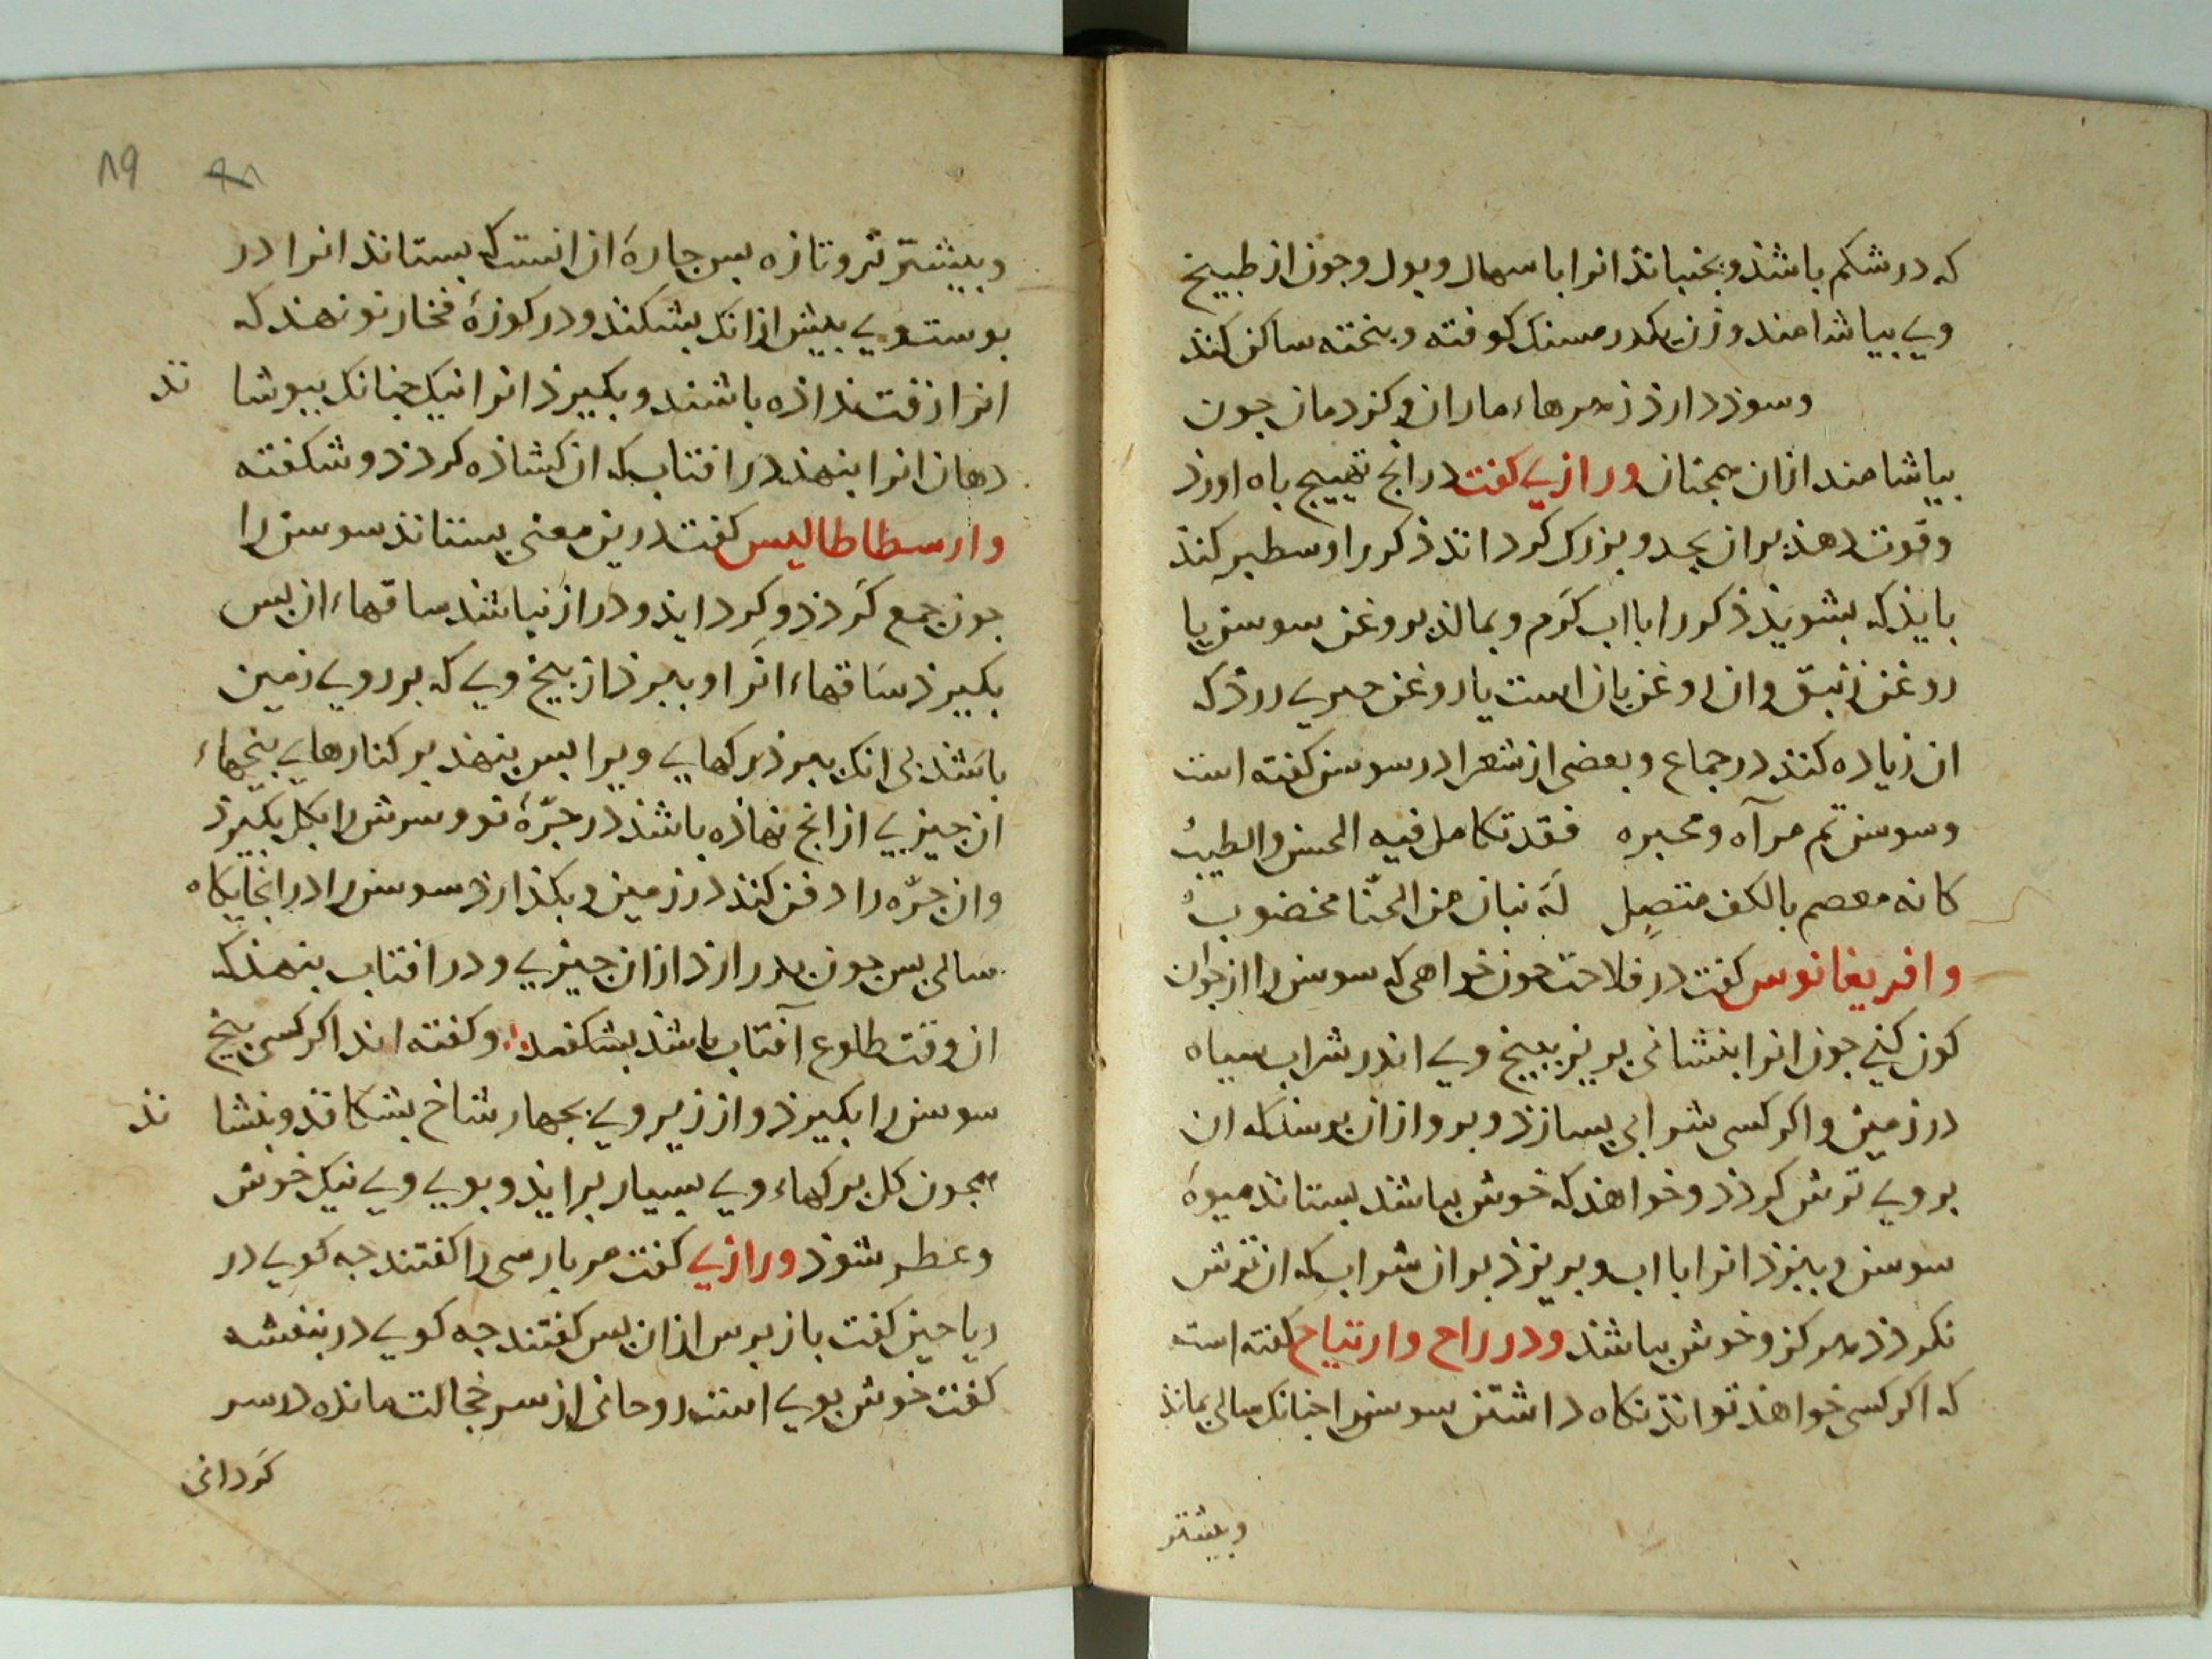 که در شکم باشذ و بجنباند انرا باسهال و بول و جون از طبیخ
وی بیاشامند وزن یکدرمسنک کوفته و بیخته ساکن کند
وسوذ دارذ زهرهاء ماران و کزدمان جون
بیاشامند ازان همجنان ورازی کفت در انج تهییج باه اورذ
وقوت دهذ بران بمدد و بزرک کرداند ذکر را و سطبر کند
بایذ که بشویذ ذکر را باب کَرم و بمالذ بروغن سوسن یا
روغن زنبق وان روغن بان است یا روغن خیری زرد که
ان زیاده کند در جماع و بعضی از شعرا در سوسن کفته است
وسوسن تم مرآه ومخبره فقد تکامل فیه الحسن والطیبُ
کانه معصم بالکف متصِل لَه بنان من الحنّا مخضوبُ
وافریغانوس کفت در فلاحت جون خواهی که سوسن را ارغوان
کون کنی جون انرا بنشانی بریز ببیخ وی اندر شراب سیاه
در زمین و اکر کسی شرابی بسازذ و بروازان بوسذ که ان
بروی ترش کردذ و خواهند که خوش بباشد بستاند میوهٔ
سوسن و ببزذ انرا با اب و بریزذ بران شراب که ان ترش
نکردذ هرکز و خوش بباشذ ودر راح وارتیاح کفته است
که اکر کسی خواهذ توانذ نکاه داشتن سوسن را جنانک سالی بماند
وبیشتر
۸۹
وبیشتر تر و تازه بس جارهٔ ان انست که بستاند انرا در
بوستوی بیش ازانک بشکند و در کوزهٔ فخار نو نهند که
انرا زفت نداذه باشند و بکیرذ انرا نیک جنانک ببوشا ند
دهان انرا بنهذ در افتاب که ان کشاذه کردذ و شکفته
وارسطاطالیس کفت درین معنی بستاند سوسن را
جون جمع کَردذ و کِرد ایذ و دراز نباشد ساقهاء ان بس
بکیرذ سَاقهاء انَرا و ببرذ از بیخ وی که بر روی زمین
باشد بی انک ببرذ رکهای ویرا بس بنهذ بر کنارهای بیخهاء
ان جیزی از انج نهاذه باشذ در جَرّهٔ نو و سرش را بکل بکیرذ
وان جرّه را دفن کند در زمین و بکذارذ سوسن را در انجایکاه
سالی بس جون بدر ارذ ازان جیزی و در افتاب بنهذ که
ان وقت طلوع آفتاب باشد بشکفد وکفته اند اکر کسی بیخ
سوسن را بکیرذ و از زیر وی بجهار شاخ بشکافد و بنشا ند
همجون کل برکهاء وی بسیار برایذ و بوی وی نیک خوش
وعطر شوذ ورازی کفت مر بارسی را کفتند جه کویی در
ریاحین کفت باز برس ازان بس کفتند جه کویی در بنفشه
کفت خوش بوی است روحانی از سر خجالت مانده در سر
کَردانی